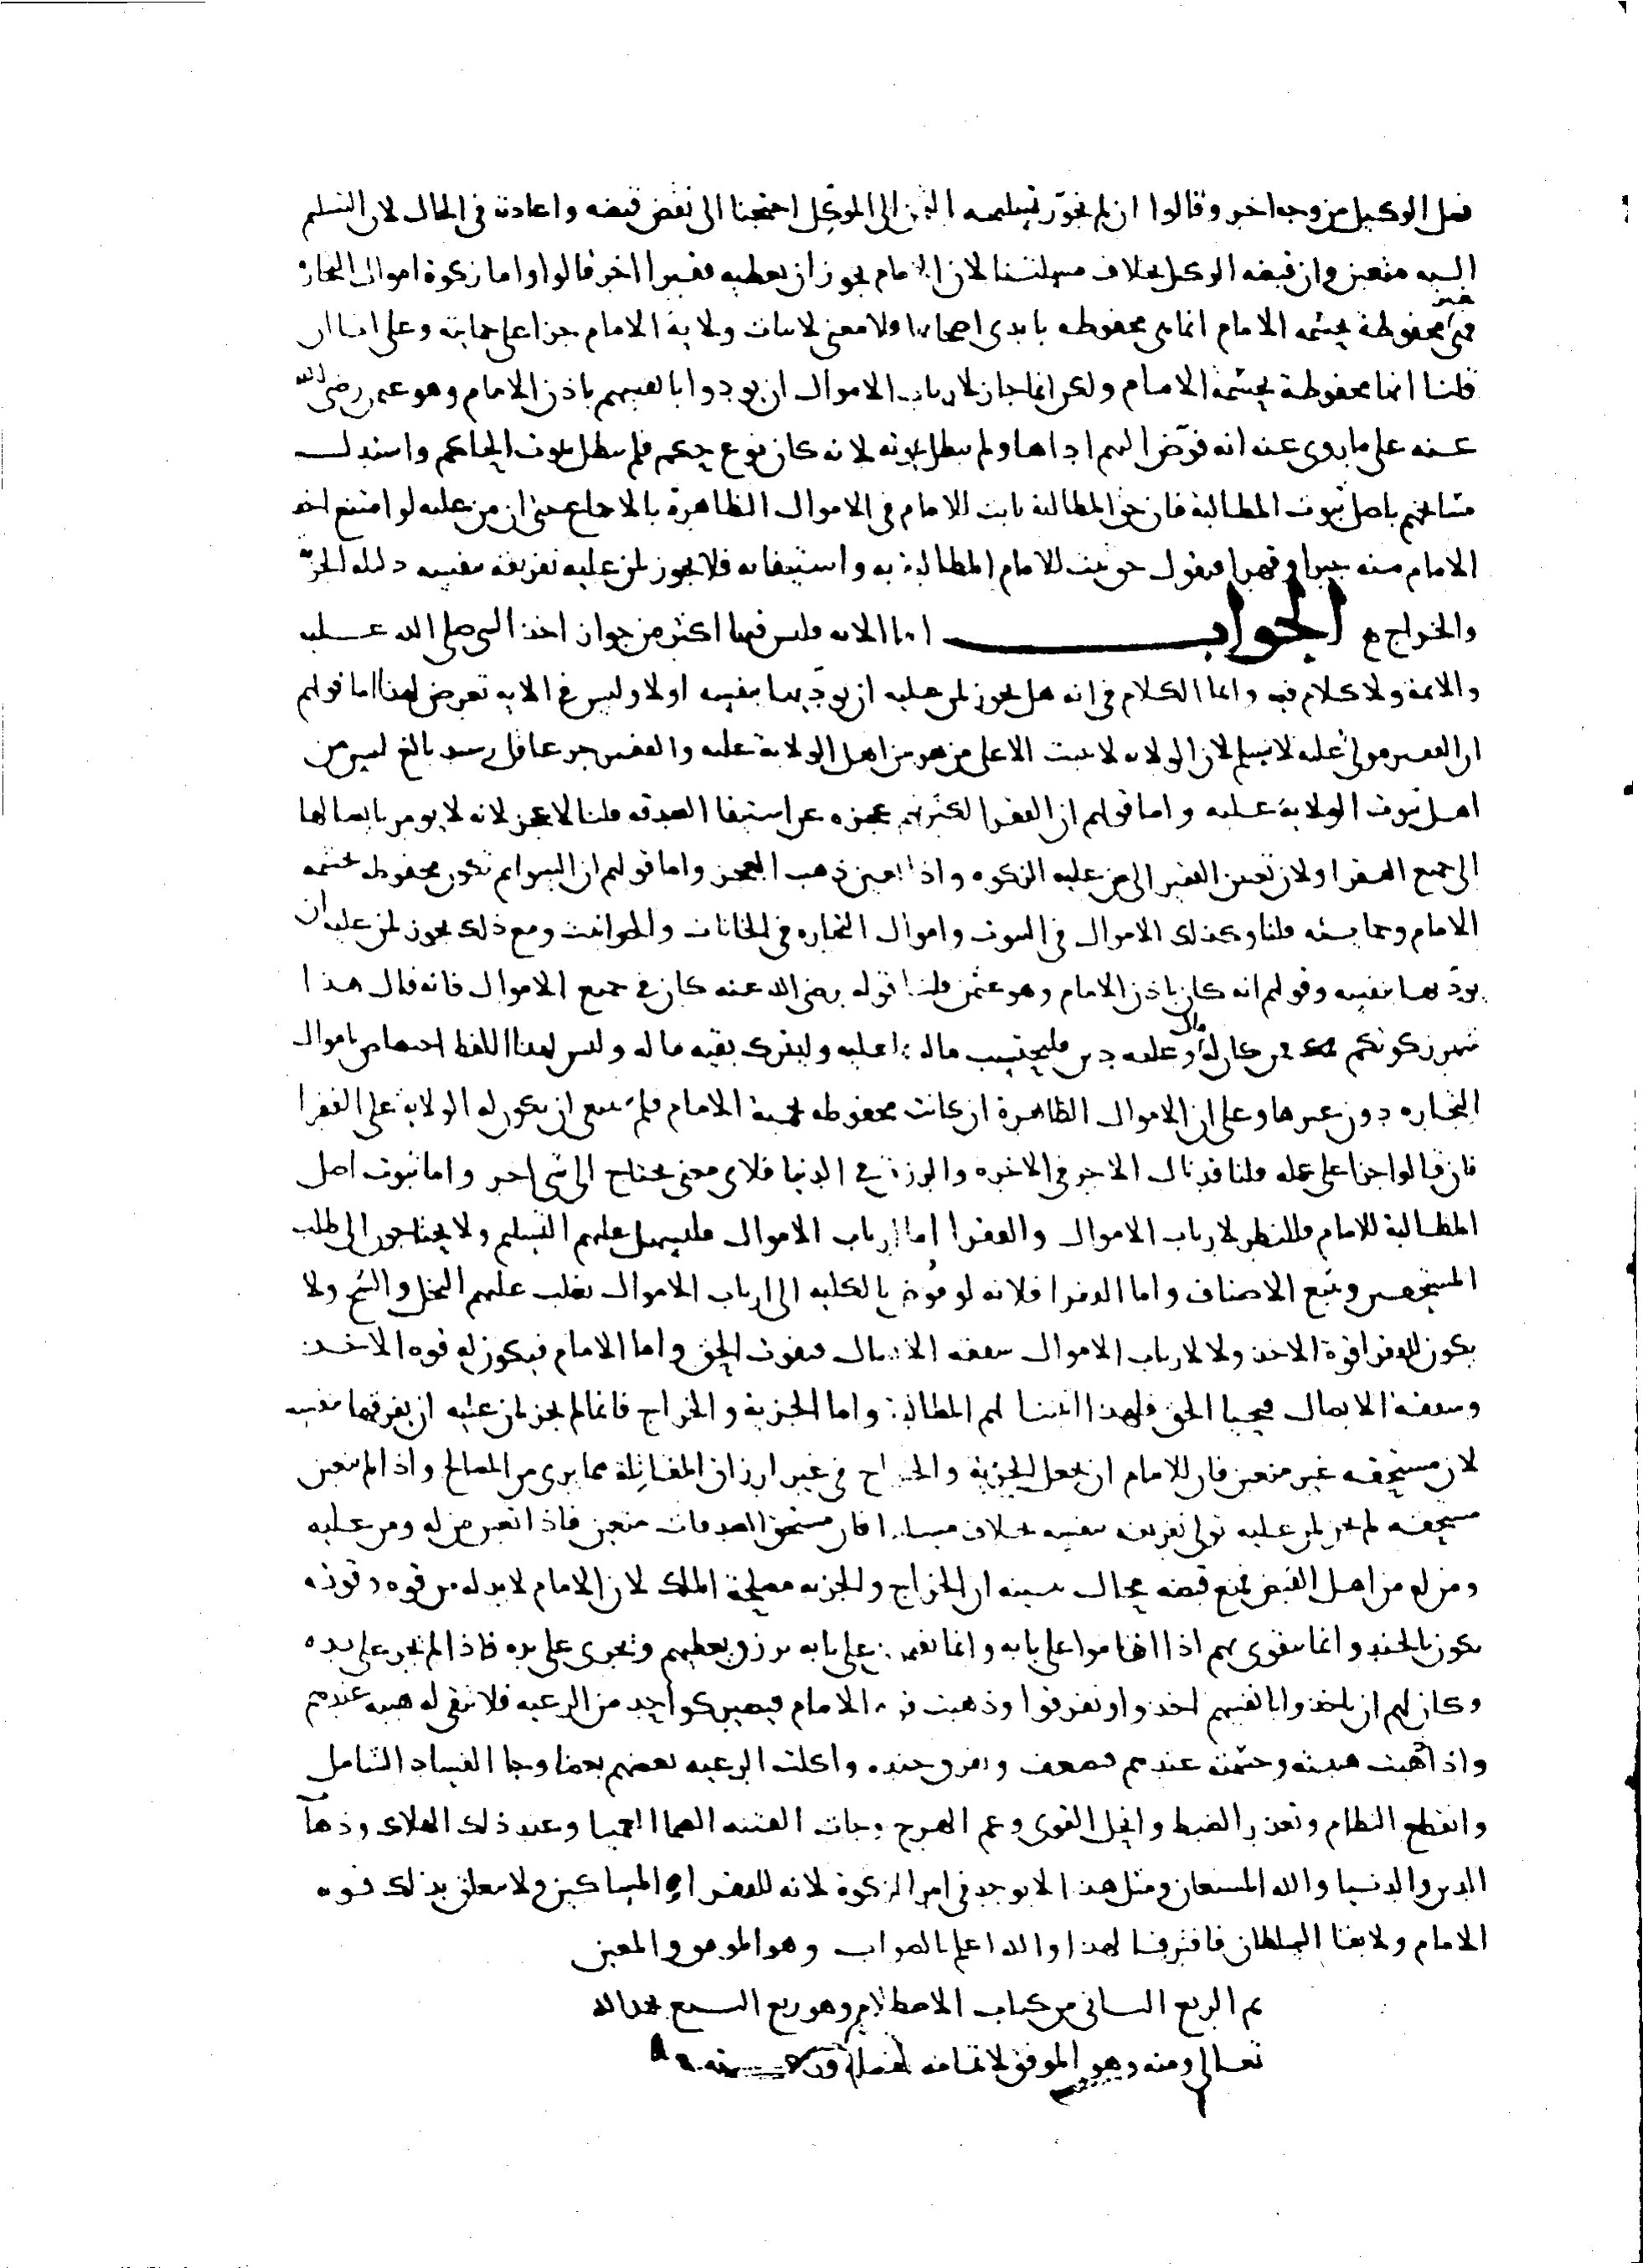 فعل الوكيل من وجه اخر وقالوا ان لم نجوّز تسليمه الثمن الى الموكل احتجنا الى نقض قبضه واعادته في الحال لان التسلم
اليه متعين وان قبضه الوكيل بخلاف مسئلتنا لان الامام يجوز ان يعطيه فقيرا اخر قالوا واما زكوة اموال التجارة
غير محفوظة بحشمة الامام انما هي محفوظه بايدي اصحابها ولا معنى لاثبات ولاية الامام جزا على حمايته وعلى انا ان
قلنا انها محفوظة بحشمة الامام ولكن انما جاز لارباب الاموال ان يودوا بانفسهم باذن الامام وهو عثمن رضي الله
عنه على ما روى عنه انه فوّض اليهم اداها ولم يبطل بموته لانه كان نوع حكم فلم يبطل بموت الحاكم واستدل
مشايخهم باصل ثبوت المطالبة فان حق المطالبة ثابت للامام في الاموال الظاهرة بالاجماع حتى ان من عليه لو امتنع اخذ
الامام منه جبرا وقهرا فنقول حق ثبت للامام المطالبة به واستيفاه فلا يجوز لمن عليه تفريقه بنفسه دليله الجزية
والخراج الجواب اما الايه فليس فيها اكثر من جواز اخذ النبي صلى الله عليه
والايمة ولا كلام فيه وانما الكلام في انه هل يجوز لمن عليه ان يوديها بنفسه اولا وليس في الايه تعرض لهذا اما قولهم
ان الفقير مولى عليه لا نسلم لان الولايه لا تثبت الا على من هو من اهل الولاية عليه والفقير حر عاقل رشيد بالغ ليس من
اهل ثبوت الولاية عليه واما قولهم ان الفقرا لكثرتهم عجزه عن استيفا الصدقه قلنا لا عجز لانه لا يومر بايصالها
الى جميع الفقرا ولان تعيين الفقير الى من عليه الزكوه واذا تعين ذهب العجز واما قولهم ان السوايم تكون محفوظه بحشمه
الامام وحمايته قلنا وكذلك الاموال في السوق واموال التجاره في الخانات والحوانيت ومع ذلك يجوز لمن عليه ان
يوديها بنفسه وقولهم انه كان باذن الامام وهو عثمن قلنا قوله رضي الله عنه كان في جميع الاموال فانه قال هذا
شهر زكوتكم فمن كان له مال وعليه دين فليحتسب ماله بما عليه وليترك بقيه ماله وليس لهذا اللفظ اختصاص باموال
التجاره دون غيرها وعلى ان الاموال الظاهرة ان كانت محفوظه بحمية الامام فلم ينبغي ان يكون له الولاية على الفقرا
فان قالوا جزا على عمله قلنا قد نال الاجر في الاخره والرزق في الدنيا فلاي معنى يحتاج الى شي اخر واما ثبوت اصل
المطالبة للامام فللنظر لارباب الاموال والفقرا اما ارباب الاموال فليسهل عليهم التسليم ولا يحتاجون الى طلب
المستحقين وتتبع الاصناف واما الفقرا فلانه لو فوض بالكليه الى ارباب الاموال يغلب عليهم البخل والشح ولا
يكون للفقرا قوة الاخذ ولا لارباب الاموال شفقه الايصال فيفوت الحق واما الامام فيكون له قوه الاخذ
وشفقة الايصال فيحيا الحق فلهذا اثبتنا لهم المطالبة واما الجزية والخراج فانما لم يجز لمن عليه ان يفرقها بنفسه
لان مستحقه غير متعين فان للامام ان يجعل الجزية والخراج في غير ارزاق المقاتلة مما يرى من المصالح واذا لم يتعين
مستحقه لم يجز لمن عليه تولى تفريقه بنفسه بخلاف مسئلتنا فان مستحق الصدقات متعين فاذا تعين من له ومن عليه
ومن له من اهل القبض لم يمنع قبضه بحال يبينه ان الخراج والجزيه مصلحة الملك لان الامام لا بد له من قوه وقوته
يكون بالجند وانما يتقوى بهم اذا اقاموا على بابه وانما يقيمون على بابه من رزق يعطيهم وتجرى على يده فاذا لم تجر على يده
وكان لهم ان ياخذوا بانفسهم اخذوا وتفرقوا وذهبت قوه الامام فيصير كواحد من الرعيه فلا تبقى له هيبه عندهم
واذا ذهبت هيبته وحشمته عندهم ضعف وتفرق جنده واكلت الرعيه بعضهم بعضا وجا الفساد الشامل
وانقطع النظام وتعذر الضبط وانحل القوى وعم الهرج وجات الفتنه الصما العميا وعند ذلك الهلاك وذهاب
الدين والدنيا والله المستعان ومثل هذا لا يوجد في امر الزكوة لانه للفقرا والمساكين ولا يتعلق بذلك قوه
الامام ولا بقا السلطان فافترقا لهذا والله اعلم بالصواب وهو الموفق والمعين
تم الربع الثاني من كتاب الاصطلام وهو ربع البيع بحمد الله
تعالى ومنه وهو الموفق لاتمامه بفضله